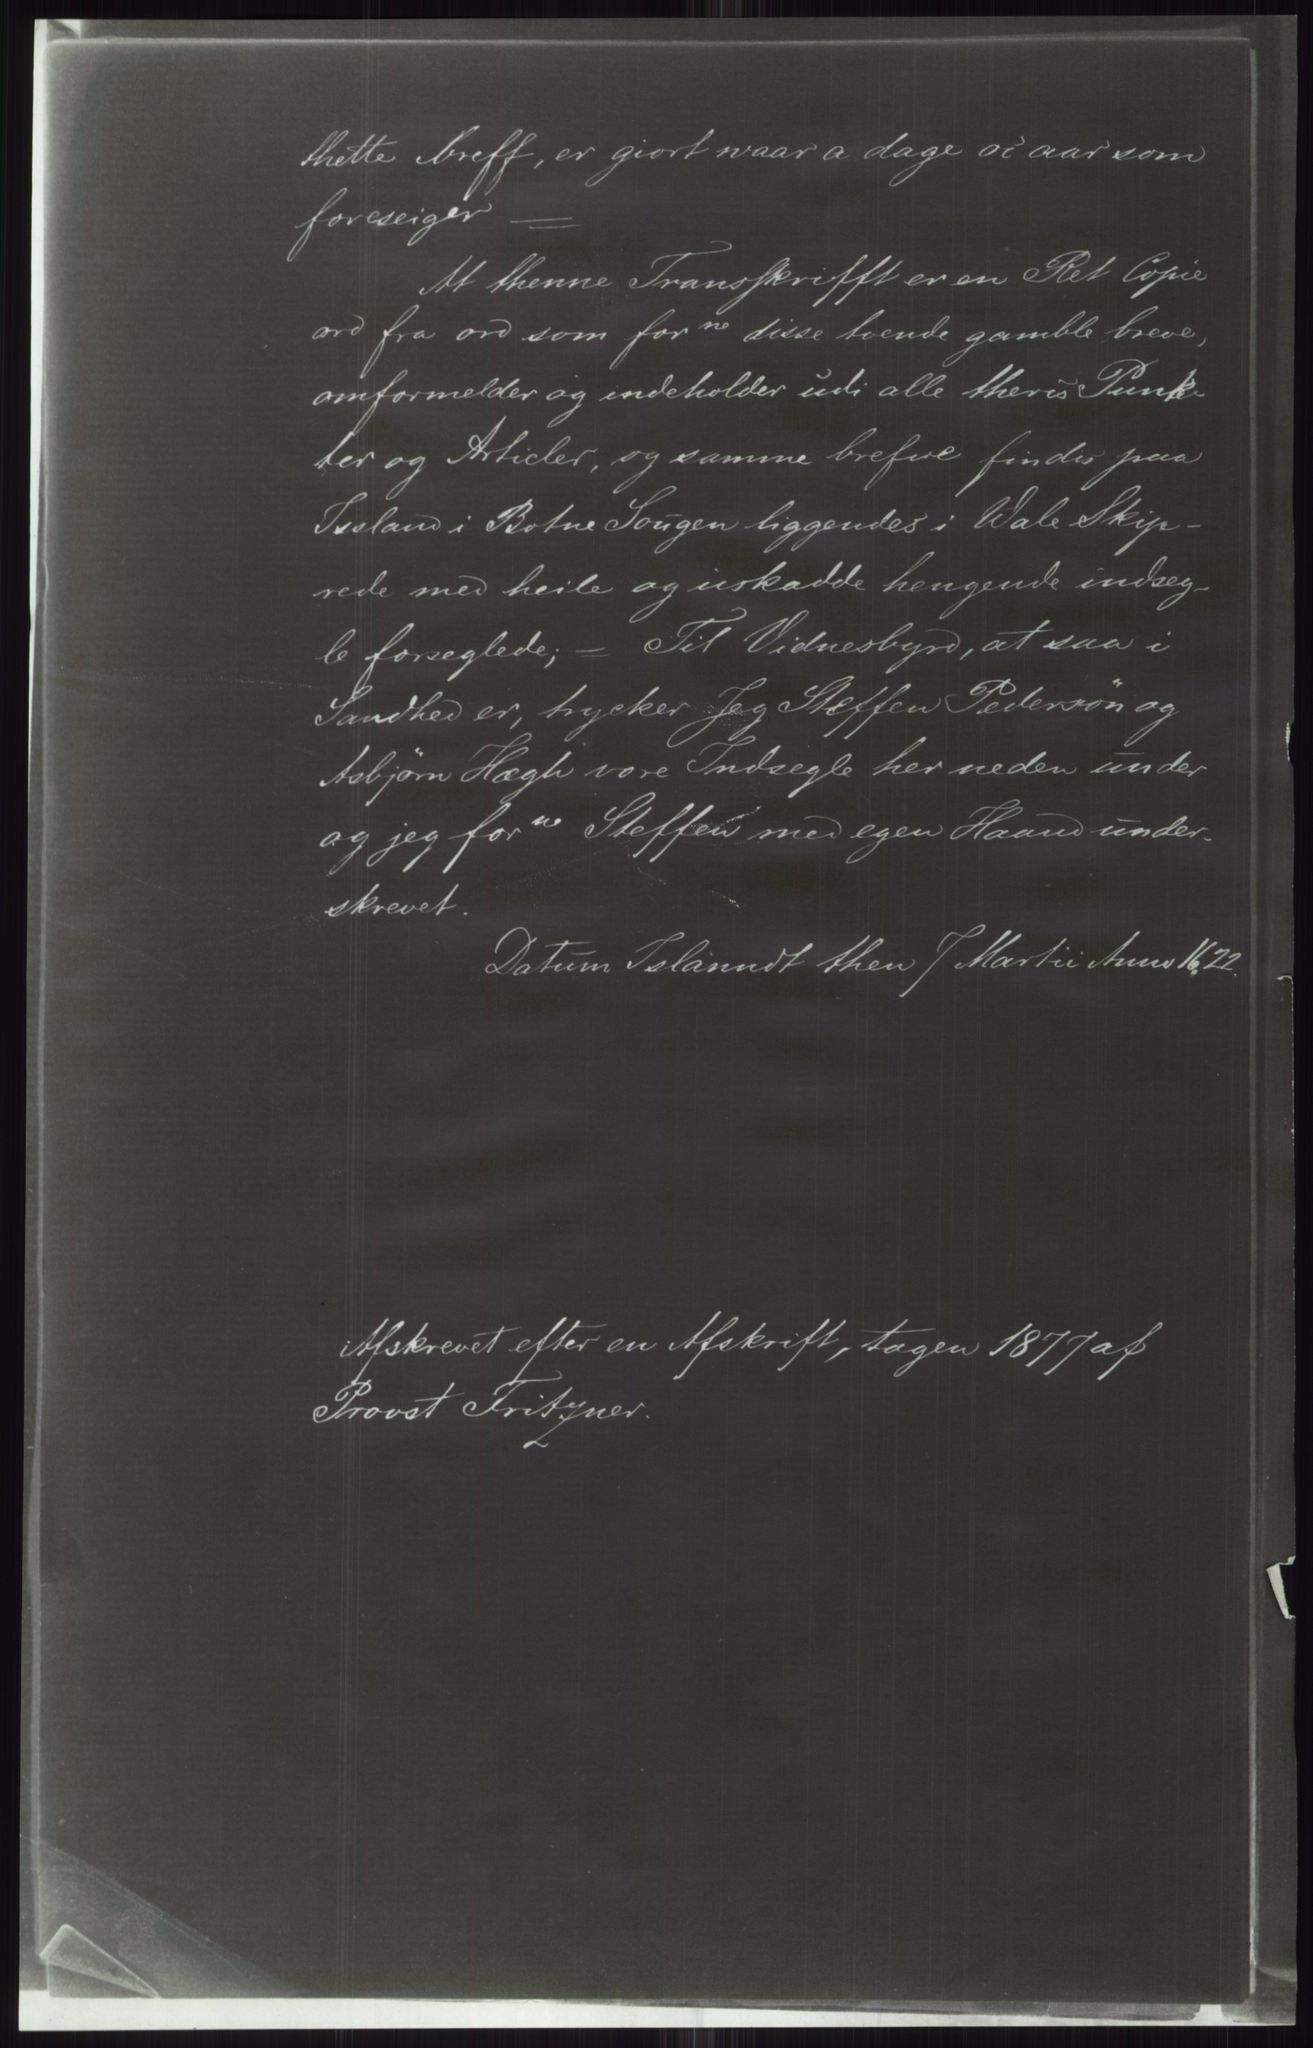 thette breff, er giort waar a dage oc aar som
foreseiger —
At thenne Transskrifft er en Ret Copie
ord fra ord som for ne disse tvende gamble breve,
omformelder og indeholder udi alle theris Punk-
ter og Articler, og samme brefve findis paa
Issland i Botne Sougen liggendes i Wale Skip-
rede med heile og uskadde hengende indseg-
le forseglede; — Til Vidnesbyrd, at saa i
Sandhed er, trycker Jeg Steffen Pedersön og
Asbjørn Hægh vore Indsegle her neden under
og jeg for ne Steffen med egen Haand under-
skrevet.
Datum Islanndt then 7 Martii Anno 1622.
Afskrevet efter en Afskrift, tagen 1877 af
Provst Fritzner.